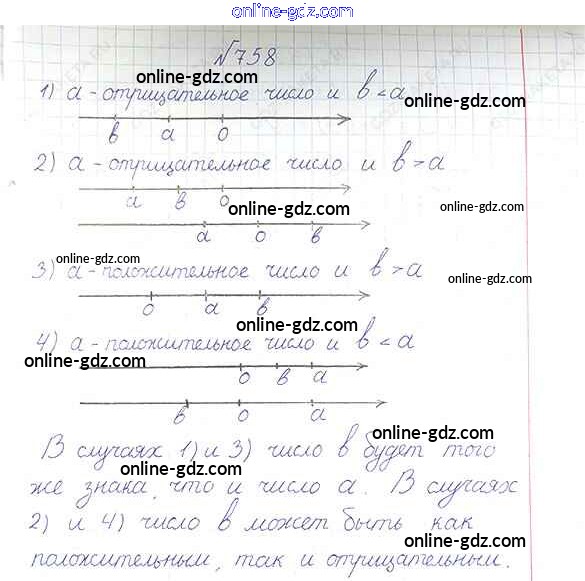 online-gdz.com
№758
online-gdz.com
1) а - отрицательное число и в < а
online-gdz.com
в а 0
2) а - отрицательное число и в > а
а в 0
online-gdz.com
online-gdz.com
а 0 в
online-gdz.com
3) а - положительное число и в > а
online-gdz.com
0 а в
online-gdz.com
4) а - положительное число и в < а
online-gdz.com
0 в а
в 0 а
online-gdz.com
В случаях 1) и 3) число в будет того
online-gdz.com
же знака, что и число а. В случаях
2) и 4) число в может быть как
online-gdz.com
положительным, так и отрицательным.
online-gdz.com